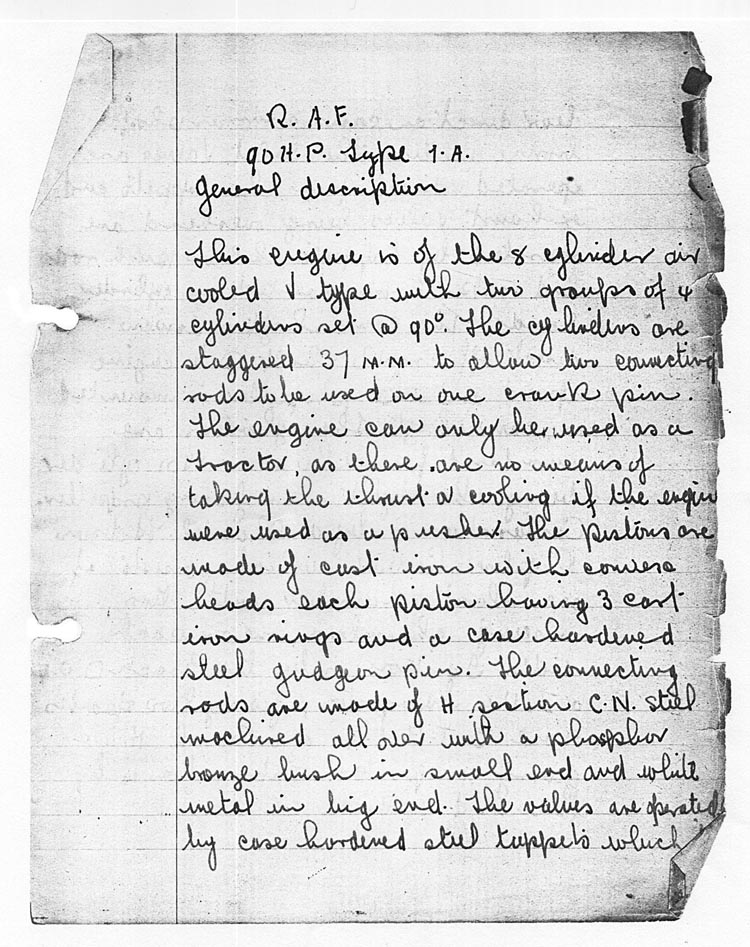 R. A. F.
90 H.P. Type 1. A.
General description
This engine is of the 8 cylinder air
cooled V type with two groups of 4
cylinders set @ 90°. The cylinders are
staggered 37 M.M. to allow two connecting
rods to be used on one crank pin.
The engine can only be used as a
Tractor, as there are no means of
taking the thrust or cooling if the engin
were used as a pusher. The pistons are
made of cast iron with convex
heads each piston having 3 cast
iron rings and a case hardened
steel gudgeon pin. The connecting
rods are made of H section C.N. steel
machined all over with a phosphor
bronze bush in small end and white
metal in big end. The valves are operated
by case hardened steel tappets which